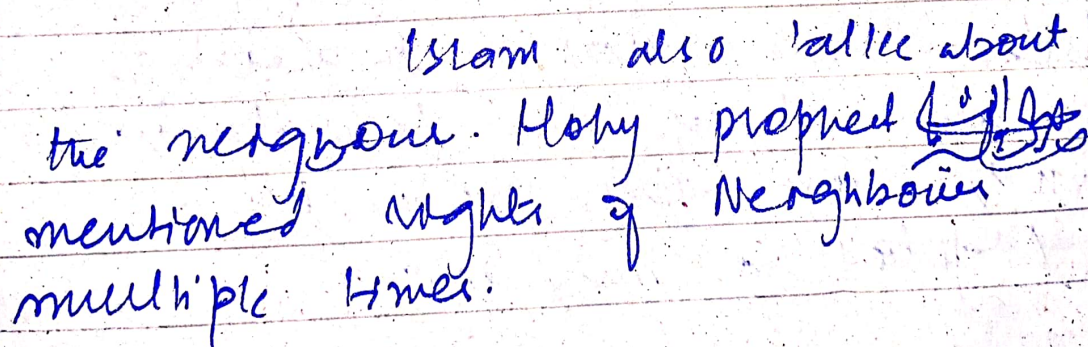 Islam also talk about
the neighbour. Holy prophet ﷺ
mentioned rights of Neighbours
multiple times.